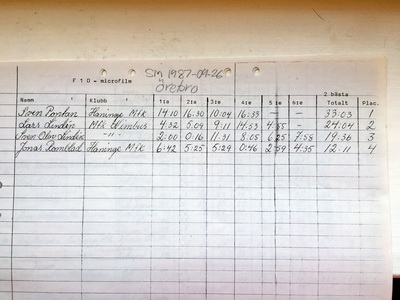 SM 1987-09-26
F 1 D - microfilm
Örebro
2 bästa
Namn Klubb 1:a 2:a 3:e 4:e 5:e 6:e Totalt Plac.
Sven Pontan Haninge Mfk 14:10 16:30 10:04 16:33 — — 33:03 1
Lars Lindén Mfk Nimbus 4:32 5:09 9:11 14:53 4:55 — 24:04 2
Sven Olov Lindén -"- 2:00 0:16 11:31 8:05 6:25 7:58 19:36 3
Jonas Romblad Haninge Mfk 6:42 5:25 5:29 0:46 2:59 4:35 12:11 4